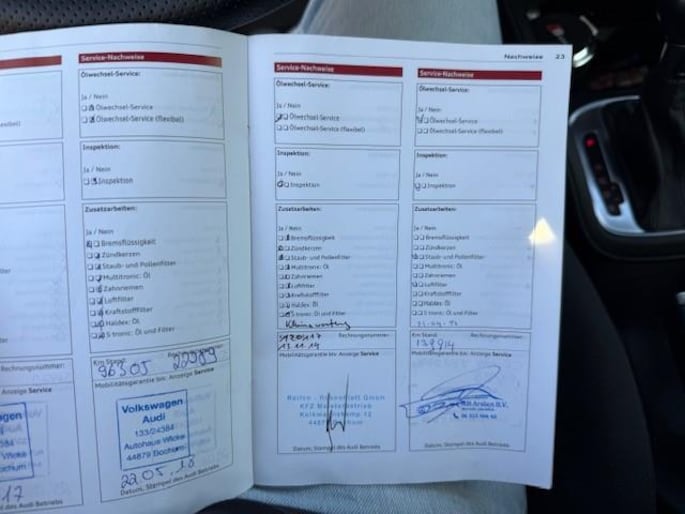 Service-Nachweise
Ölwechsel-Service:
Ja / Nein
Ölwechsel-Service
Ölwechsel-Service (flexibel)
Inspektion:
Ja / Nein
Inspektion
Zusatzarbeiten:
Ja / Nein
Bremsflüssigkeit
Zündkerzen
Staub- und Pollenfilter
Multitronic: Öl
Zahnriemen
Luftfilter
Kraftstofffilter
Haldex: Öl
S tronic: Öl und Filter
Km Stand:
96305 
Mobilitätsgarantie bis: Anzeige Service
Volkswagen
Audi
133/24384
Autohaus Wicke
44879 Bochum
22.05.18
Datum, Stempel des Audi Betriebs
Rechnungsnummer:
Anzeige Service
17
des Audi Betriebs
Nachweise 23
Service-Nachweise
Ölwechsel-Service:
Ja / Nein
Ölwechsel-Service
Ölwechsel-Service (flexibel)
Inspektion:
Ja / Nein
Inspektion
Zusatzarbeiten:
Ja / Nein
Bremsflüssigkeit
Zündkerzen
Staub- und Pollenfilter
Multitronic: Öl
Zahnriemen
Luftfilter
Kraftstofffilter
Haldex: Öl
S tronic: Öl und Filter
Rechnungsnummer:
Mobilitätsgarantie bis: Anzeige Service
GmbH
KFZ Meisterbetrieb
Datum, Stempel des Audi Betriebs
Service-Nachweise
Ölwechsel-Service:
Ja / Nein
Ölwechsel-Service
Ölwechsel-Service (flexibel)
Inspektion:
Ja / Nein
Inspektion
Zusatzarbeiten:
Ja / Nein
Bremsflüssigkeit
Zündkerzen
Staub- und Pollenfilter
Multitronic: Öl
Zahnriemen
Luftfilter
Kraftstofffilter
Haldex: Öl
S tronic: Öl und Filter
Km Stand:
Rechnungsnummer:
139914
Mobilitätsgarantie bis: Anzeige Service
B.V.
Datum, Stempel des Audi Betriebs